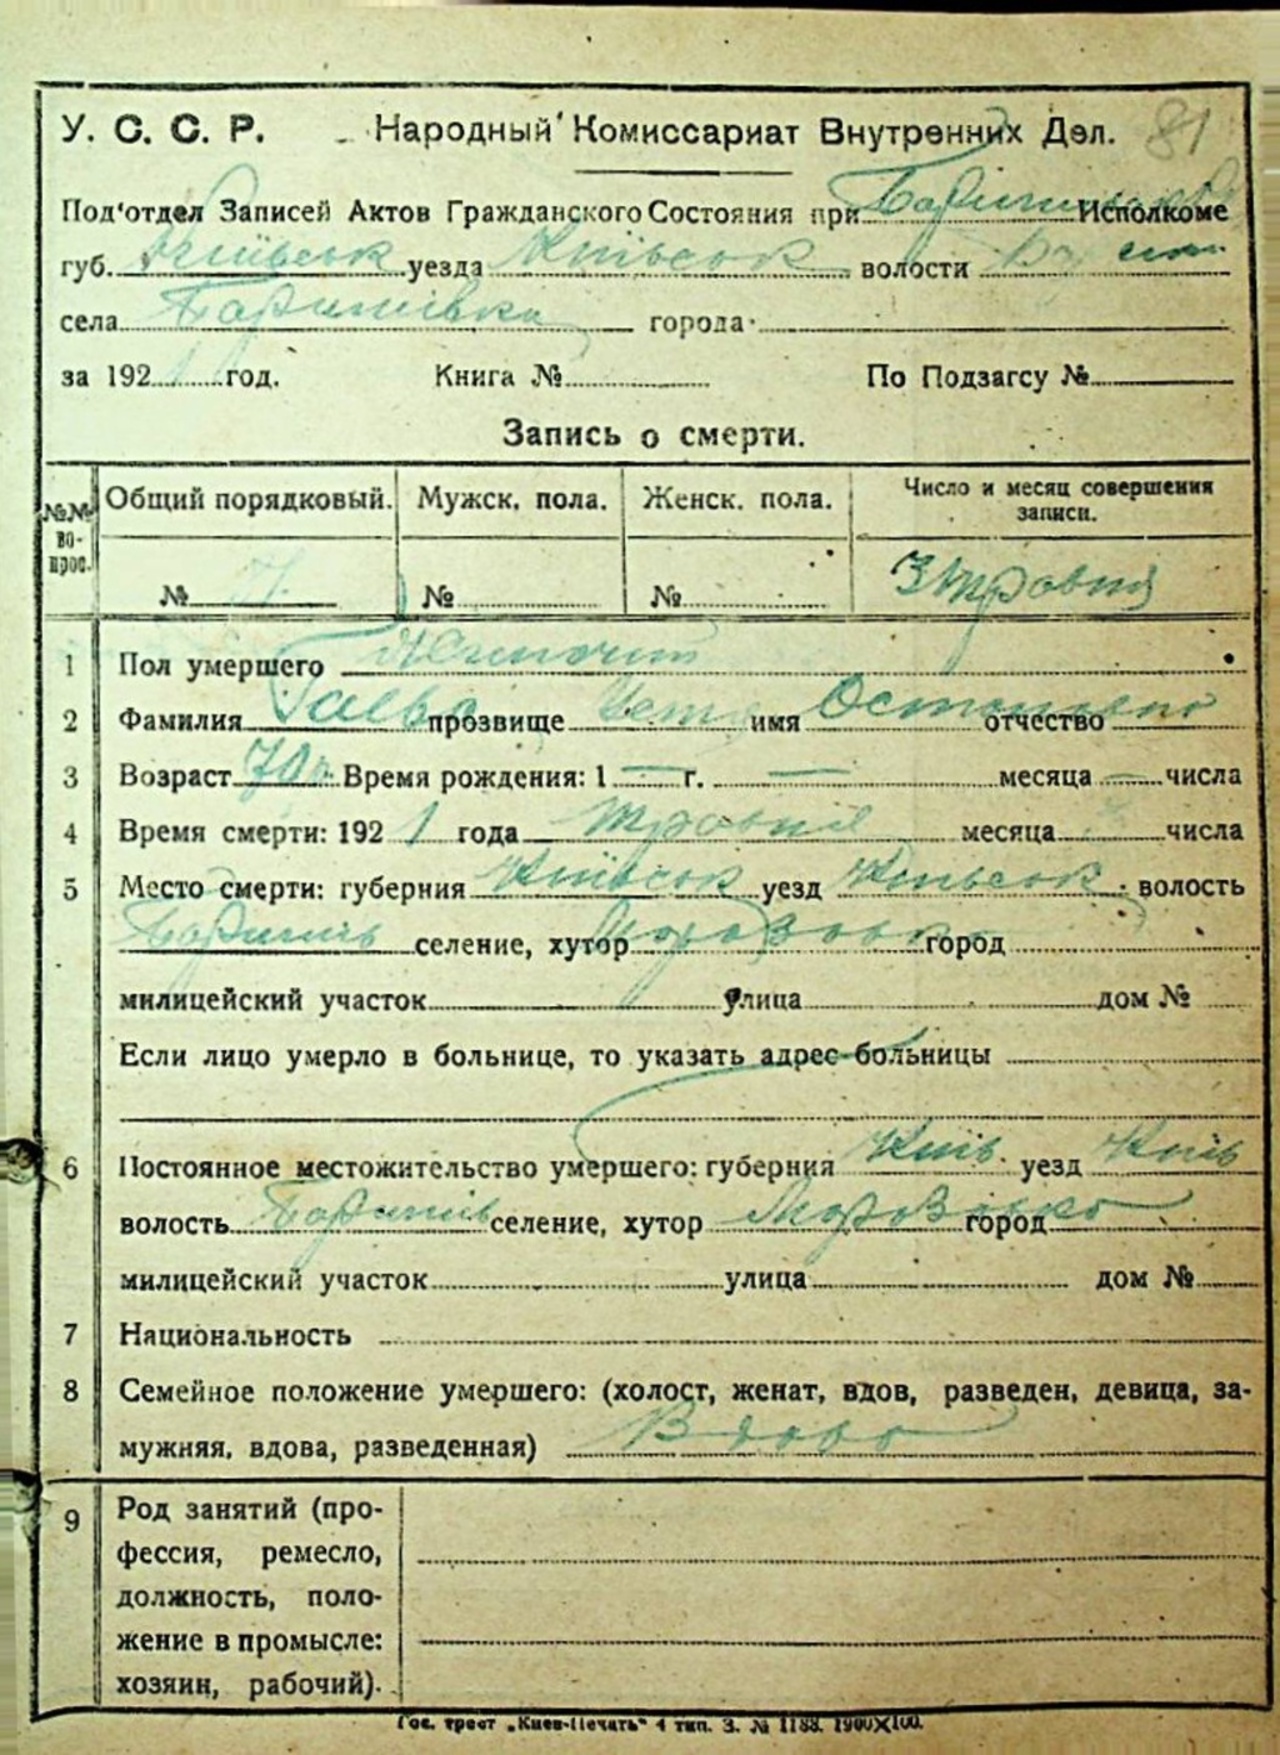 81
У. С. С. Р. Народный Комиссариат Внутренних Дел.
Под'отдел Записей Актов Гражданского Состояния при Исполкоме
губ. Київськ уезда Київськ волости
села Баришівка города
за 1921 год. Книга № По Подзагсу №
Запись о смерти.
№№ вопрос. Общий порядковый. Мужск. пола. Женск. пола. Число и месяц совершения записи.
№ № № 3 травня
1 Пол умершего Жіночий
2 Фамилия Гаева прозвище имя Остаповна отчество
3 Возраст 70 Время рождения: 1 — г. — месяца — числа
4 Время смерти: 1921 года травня месяца числа
5 Место смерти: губерния Київськ уезд Київськ волость
Баришів селение, хутор Морозовка город
милицейский участок улица дом №
Если лицо умерло в больнице, то указать адрес больницы
6 Постоянное местожительство умершего: губерния Київ. уезд Київ
волость Баришів селение, хутор Морозовка город
милицейский участок улица дом №
7 Национальность
8 Семейное положение умершего: (холост, женат, вдов, разведен, девица, за-
мужняя, вдова, разведенная) Вдова
9 Род занятий (про-
фессия, ремесло,
должность, поло-
жение в промысле:
хозяин, рабочий).
Гос. трест „Киев-Печать" 4 тип. З. № 1188. 1900×100.